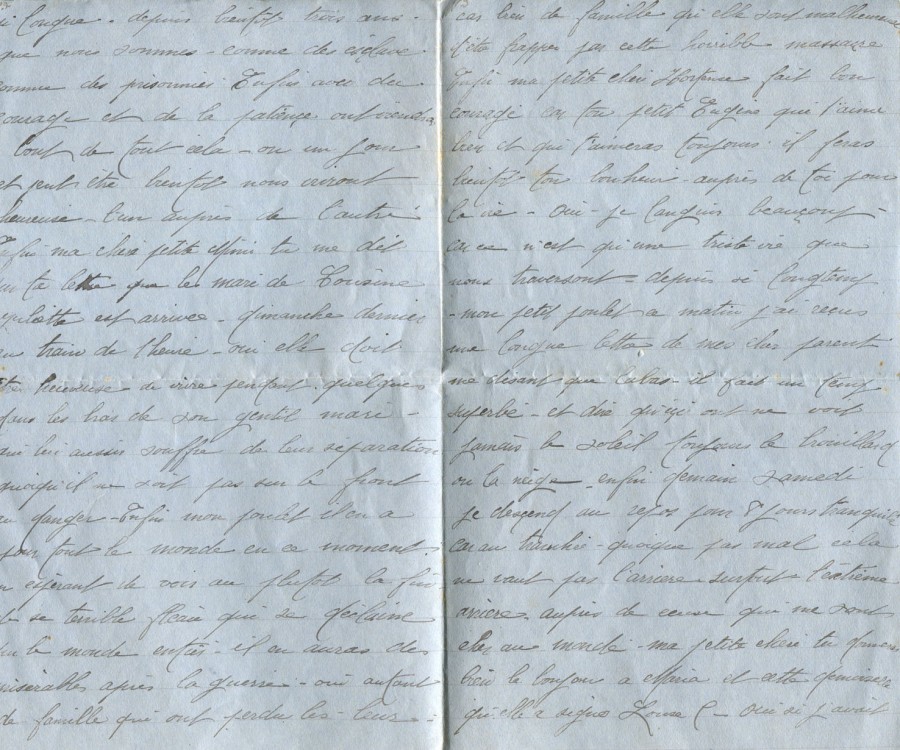 Longue - depuis bientot trois ans -
que nous sommes - comme des esclave
comme des prisonnier Enfin avec du
courage et de la patiance ont viendra
bout de tout cela - ou un jour
et peut etre bientot nous seront
heureuse - l'un auprès de l'autre
Enfin ma cher petite Mimi tu me dit
sur ta lettre que les mari de Cousine
est arrivee - dimanche dernier
au train de 1 heure - oui elle doit
être heureuse de vivre pendant quelques
jours les bras de son gentil mari -
qui lui aussi souffre de leur séparation
quoiqu'il ne soit pas sur le front
en danger - Enfin mon poulet il en a
pour tout le monde en ce moment
en espérant de voir au plutot la fin
de se terrible fléau qui se déchaine
sur le monde entier - il en auras des
misérables après la guerre - oui autant
de famille qui ont perdu les - leurs -
car bien de famille qu'elle sont malheureuse
d'etre frapper par cette horrible massacre
Enfin ma petite cheri Hortense fait bon
courage car ton petit Eugène qui t'aime
bien et qui t'aimeras toujours il feras
bientôt ton bonheur - auprès de toi pour
la vie - oui - je languis beaucoup -
car ce n'est qu'une triste vie que
nous traversont - depuis si longtemp
- mon petit poulet ce matin j'ai reçus
une longue lettre de mes cher parent
me disant que labas - il fait un temp
superbe - et dire qu'ici ont ne voit
jamais le soleil toujours le brouillard
ou la neige - enfin demain samedi
je descend au repos pour 8 jours tranquille
car au tranchée - quoique pas mal cela
ne vaut pas l'arriere surtout l'extrême
arriere - auprès de ceux qui me sont
cher au monde - ma petite cheri tu donneras
bien le bonjour a Maria et cette demoiselle
qu'elle a signé Louise C - oui si j'avait